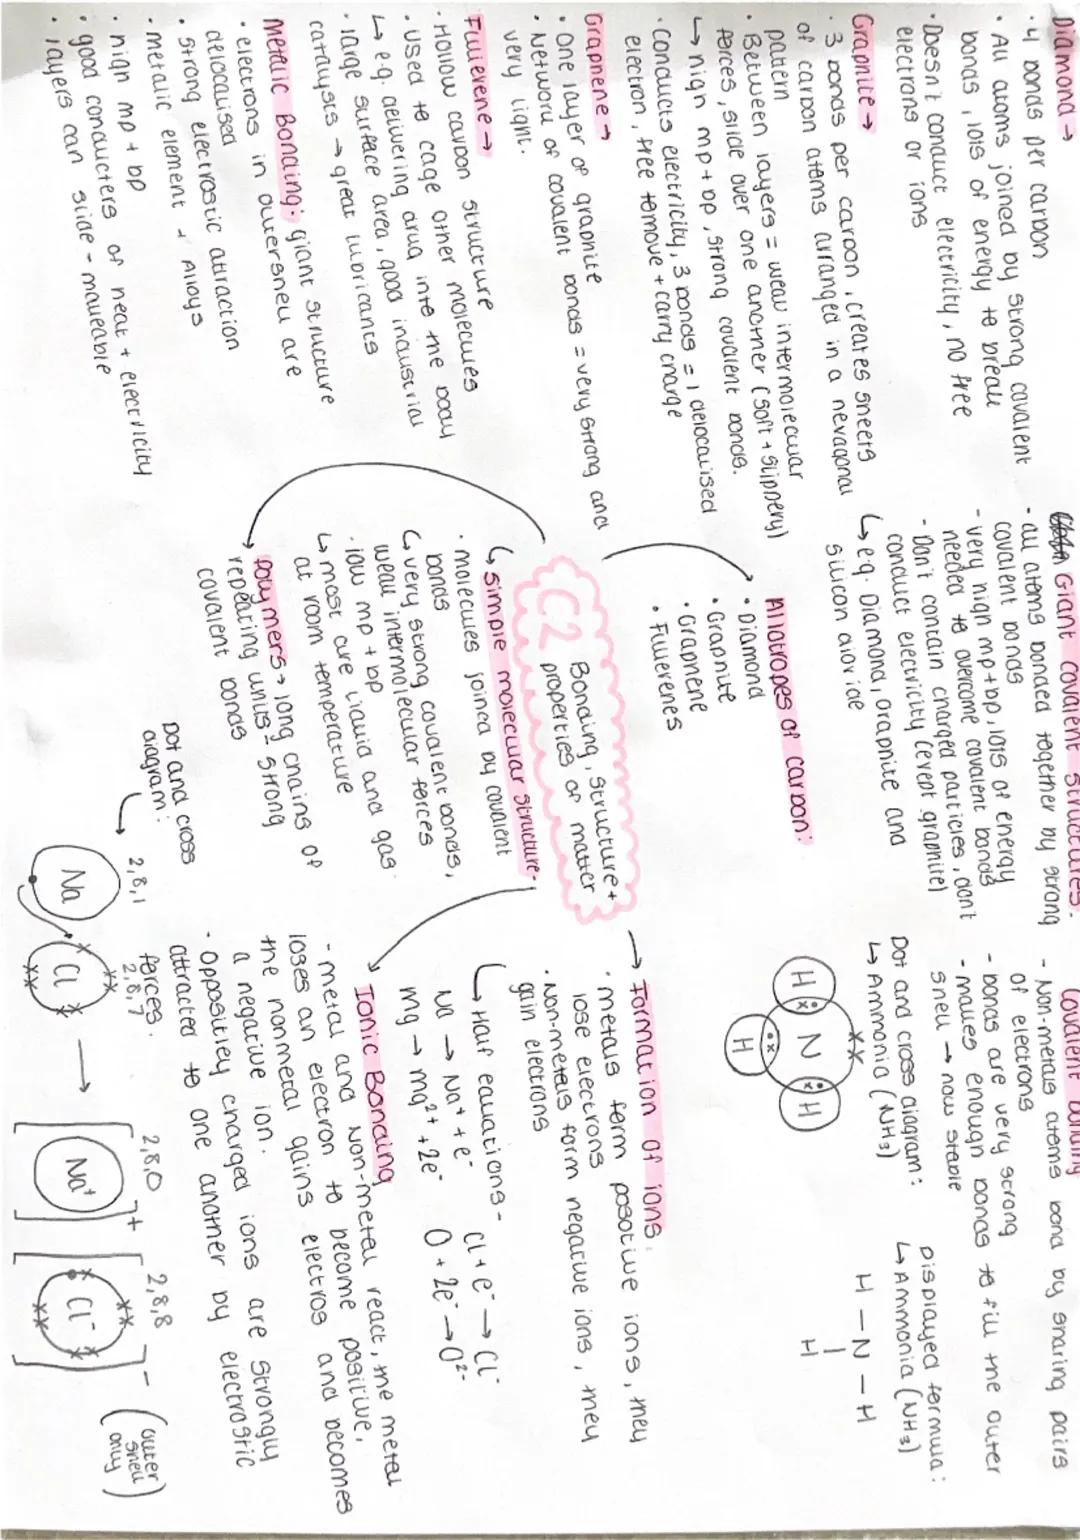 Diamond →
· 4 bonds per carbon
· All atoms joined by strong covalent
bonds, lots of energy to break
· Doesn't conduct electricity, no free
electrons or ions
Graphite →
· 3 bonds per carbon, creates sheets
of carbon atoms arranged in a hexagonal
pattern
· Between layers = weak intermolecular
forces, slide over one another (soft + slippery)
↳ high mp + bp, strong covalent bonds.
· Conducts electricity, 3 bonds = 1 delocalised
electron, free to move + carry charge
Graphene →
· One layer of graphite
· Network of covalent bonds = very strong and
very light.
Fullerene →
· Hollow carbon structure
· Used to cage other molecules
↳ eg. delivering drug into the body
· large surface area, good industrial
catalysts → great lubricants
Metallic Bonding: giant structure
· electrons in outershell are
delocalised
· strong electrostatic attraction
· metalic element + Alloys
· high mp + bp
· good conducters of heat + electricity
· layers can slide - malleable
Giant covalent structures:
- all atoms bonded together by strong
covalent bonds
- very high mp + bp, lots of energy
needed to overcome covalent bonds
- Don't contain charged particles, don't
conduct electricity (exept graphite)
↳ eg. Diamond, Graphite and
silicon dioxide
Allotropes of carbon:
· Diamond
· Graphite
· Graphene
· Fullerenes
C2 Bonding, structure +
properties of matter
↳ simple molecular structure-
· molecules joined by covalent
bonds
↳ very strong covalent bonds,
weak intermolecular forces
· low mp + bp
↳ most are liquid and gas
at room temperature
polymers → long chains of
repeating units - strong
covalent bonds
Covalent bonding
- Non-metals atoms bond by sharing pairs
of electrons
- bonds are very strong
- makes enough bonds to fill the outer
shell → now stable
Dot and cross diagram:
↳ Ammonia (NH3)
H N H
H
Displayed formula:
↳ Ammonia (NH3)
H - N - H
|
H
→ Formation of ions:
· metals form posotive ions, they
lose electrons
· Non-metals form negative ions, they
gain electrons
↳ Half equations -
Na → Na+ + e-
Cl + e- → Cl-
Mg → mg2+ + 2e-
O + 2e- → O2-
Ionic Bonding
- metal and non-metal react, the metal
loses an electron to become positive,
the nonmetal gains electros and becomes
a negative ion.
· Oppositley charged ions are strongly
attracted to one another by electrostic
forces.
Dot and cross
diagram:
2,8,1
2,8,7
2,8,0
2,8,8
Na Cl → [Na+]+ [Cl-]-
(outer shell only)